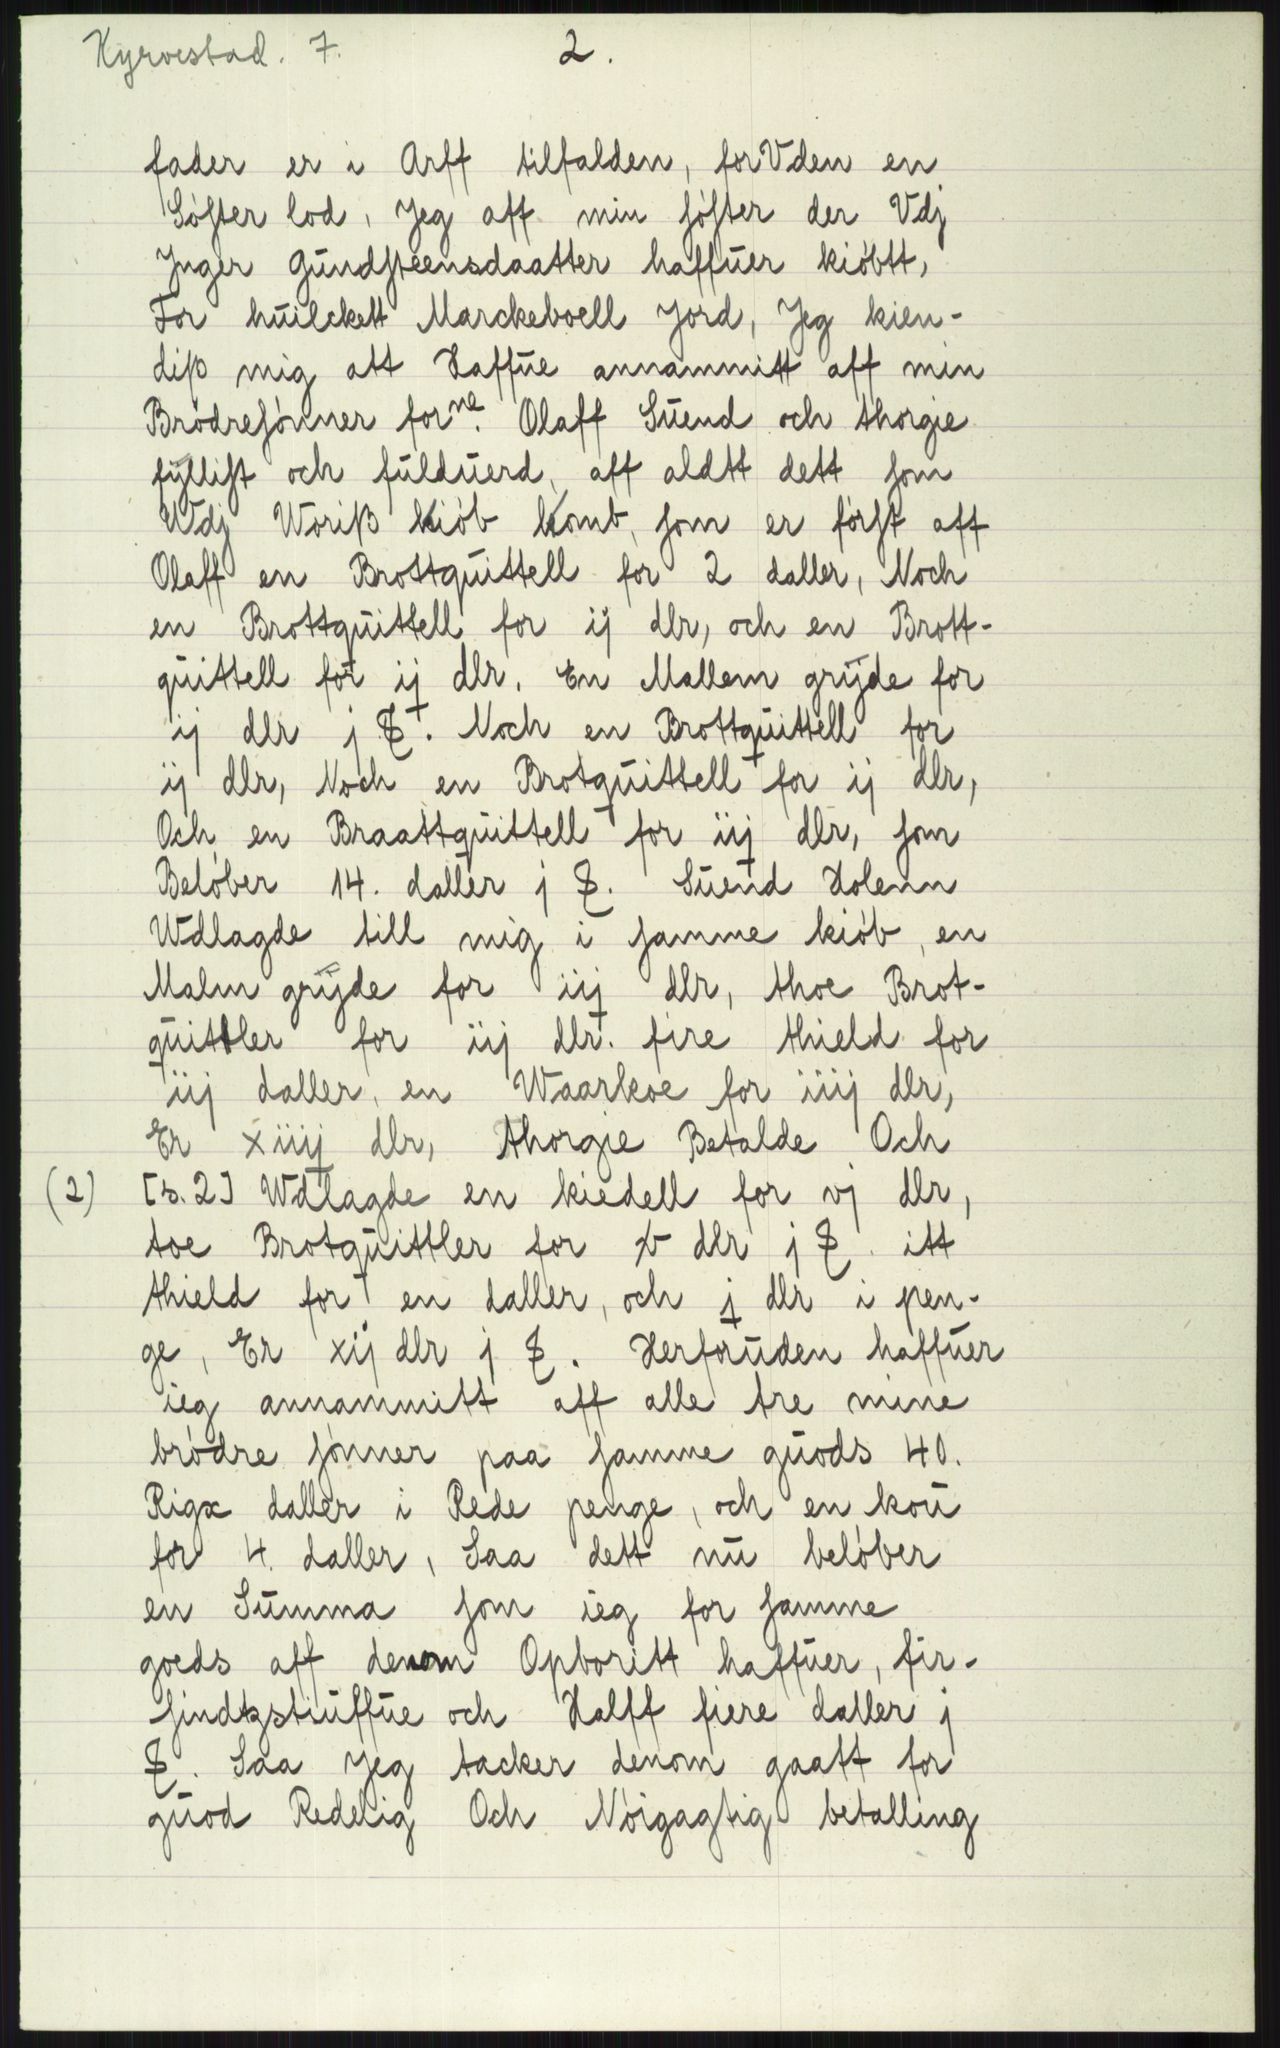 Kyrvestad. 7.
2.
fader er i Arff tilfalden, forVden en
Søster lod, Jeg aff min søster der Vdj
Jnger Gundsteensdaatter haffuer kiøbtt,
For huilckett Marckeboell Jord, Jeg kien-
diß mig att Haffue annammitt aff min
Brødresønner forne. Olaff Suend och thorgie
fyllist och fulduerd, aff aldtt dett som
Wdj Woriß kiøb komb, som er først aff
Olaff en Brottquittell for 2 daller, Noch
en Brottquittell for ij dlr, och en Brott-
quittell for ij dlr. En Mallem gryde for
ij dlr j ₰. Noch en Brottquittell for
ij dlr, Noch en Brotquittell for ij dlr,
Och en Braattquittell for iij dlr, som
Beløber 14. daller j ₰. Suend Holenn
Wdlagde till mig i samme kiøb, en
Malm gryde for iij dlr, thoe Brot-
quittler for iij dlr. fire thield for
iij daller, en Waarkoe for iiij dlr,
Er xiiij dlr, thorgie Betalde Och
(2) [s.2] Wdlagde en kiedell for vj dlr,
toe Brotquittler for v dlr j ₰. itt
thield for en daller, och j dlr i pen-
ge, Er xij dlr j ₰. Herforuden haffuer
ieg annammitt aff alle tre mine
brødre sønner paa samme guods 40.
Rigx daller i Rede penge, och en kou
for 4. daller, Saa dett nu beløber
en Summa som ieg for samme
goeds aff denom Opboritt haffuer, fir-
sindtzstiuffue och Halff fiere daller j
₰. Saa Jeg tacker denom gaatt for
guod Redelig Och Nøigagtig betalling